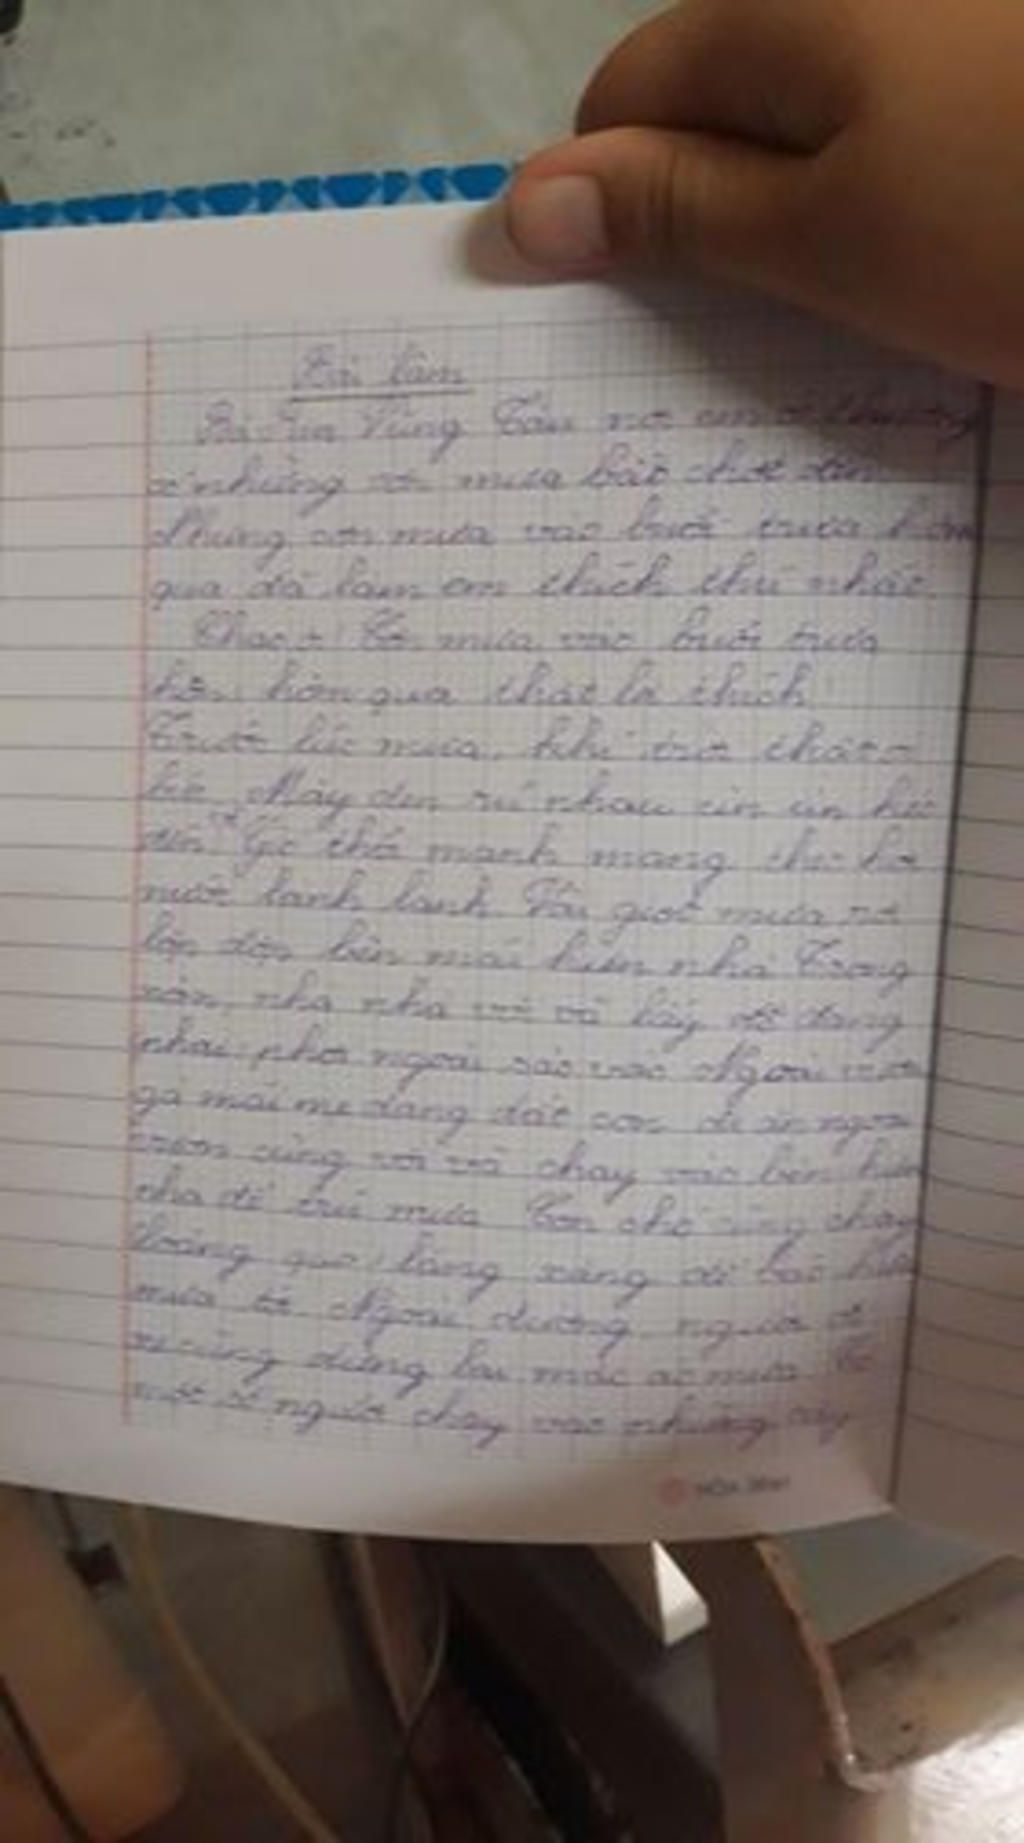 Bài làm
Bà Rịa Vũng Tàu nơi em ở thường
có những cơn mưa bất chợt đến
Những cơn mưa vào buổi trưa hôm
qua đã làm em thích thú nhất.
Chao ôi! Cơn mưa vào buổi trưa
hôm qua thật là thích
Trước lúc mưa, khí trời thật oi
Mây đen rủ nhau ùn ùn kéo
đến Gió thổi mạnh mang theo hơi
nước lành lạnh Vài giọt mưa rơi
lộp độp bên mái hiên nhà Trong
nhà vội vã lấy đồ đang
phơi ngoài sào vào Ngoài vườn
gà mái mẹ đang dắt con đi ăn ngoài
vườn cũng vội vã chạy vào bên hiên
nhà để trú mưa Con chó cũng chạy
mưa to Ngoài đường, người đi
cũng dừng lại mặc áo mưa Có
một số người chạy vào những cây
HÒA BÌNH